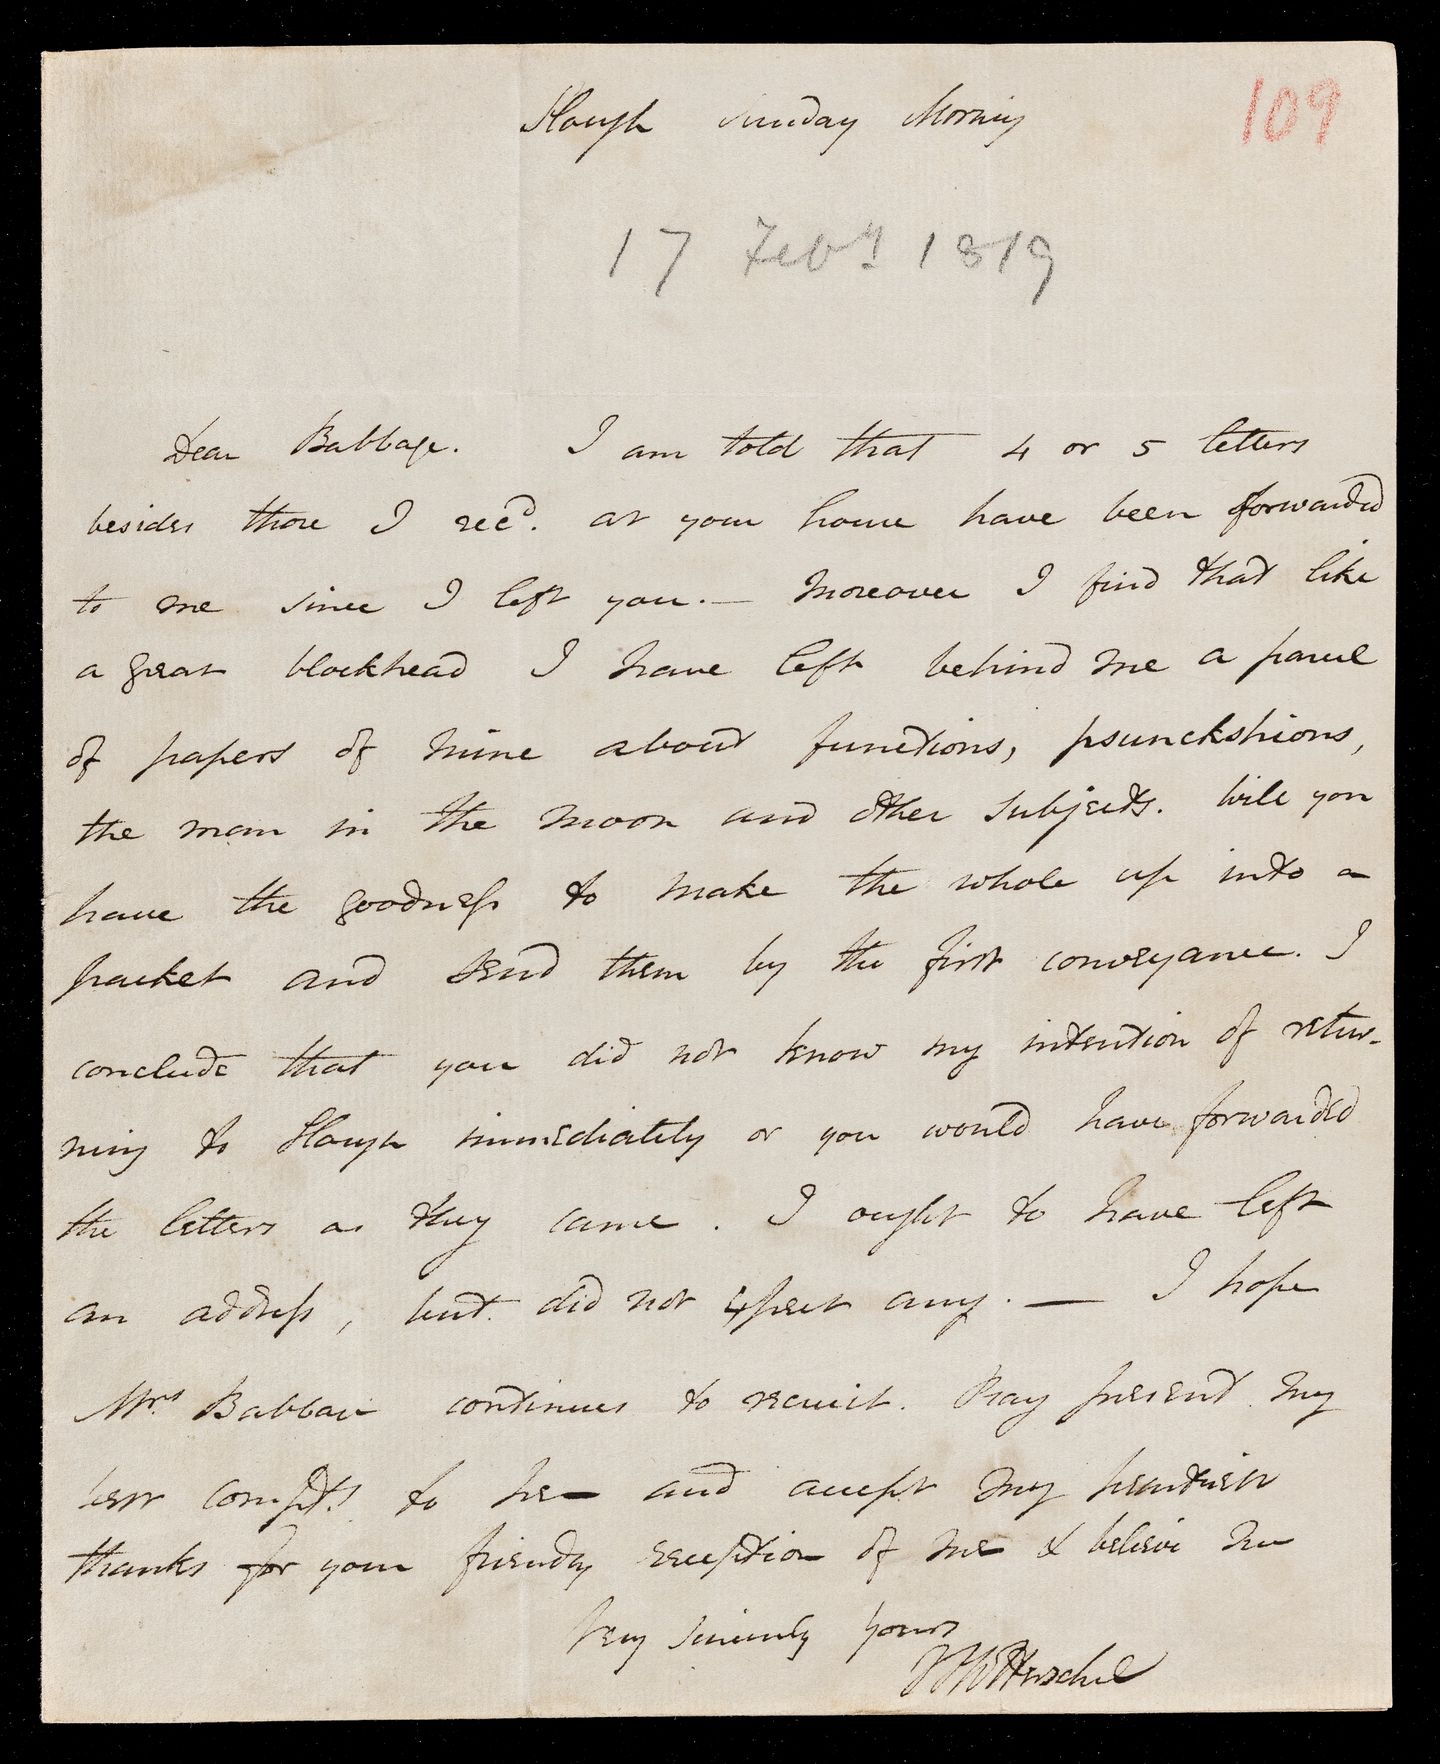 Slough Sunday Morning
109
17 Feby 1819
Dear Babbage. I am told that 4 or 5 letters
besides those I recd. at your house have been forwarded
to me since I left you. — Moreover I find that like
a great blockhead I have left behind me a parcel
of papers of mine about functions, psunckshions,
the man in the moon and other subjects. Will you
have the goodness to make the whole up into a
packet and send them by the first conveyance. I
conclude that you did not know my intention of retur-
ning to Slough immediately or you would have forwarded
the letters as they came. I ought to have left
an address, but did not expect any. — I hope
Mrs Babbage continues to recruit. Pray present my
best compts. to her and accept my heartiest
thanks for your friendly reception of me & believe me
Very sincerely yours
JFW Herschel